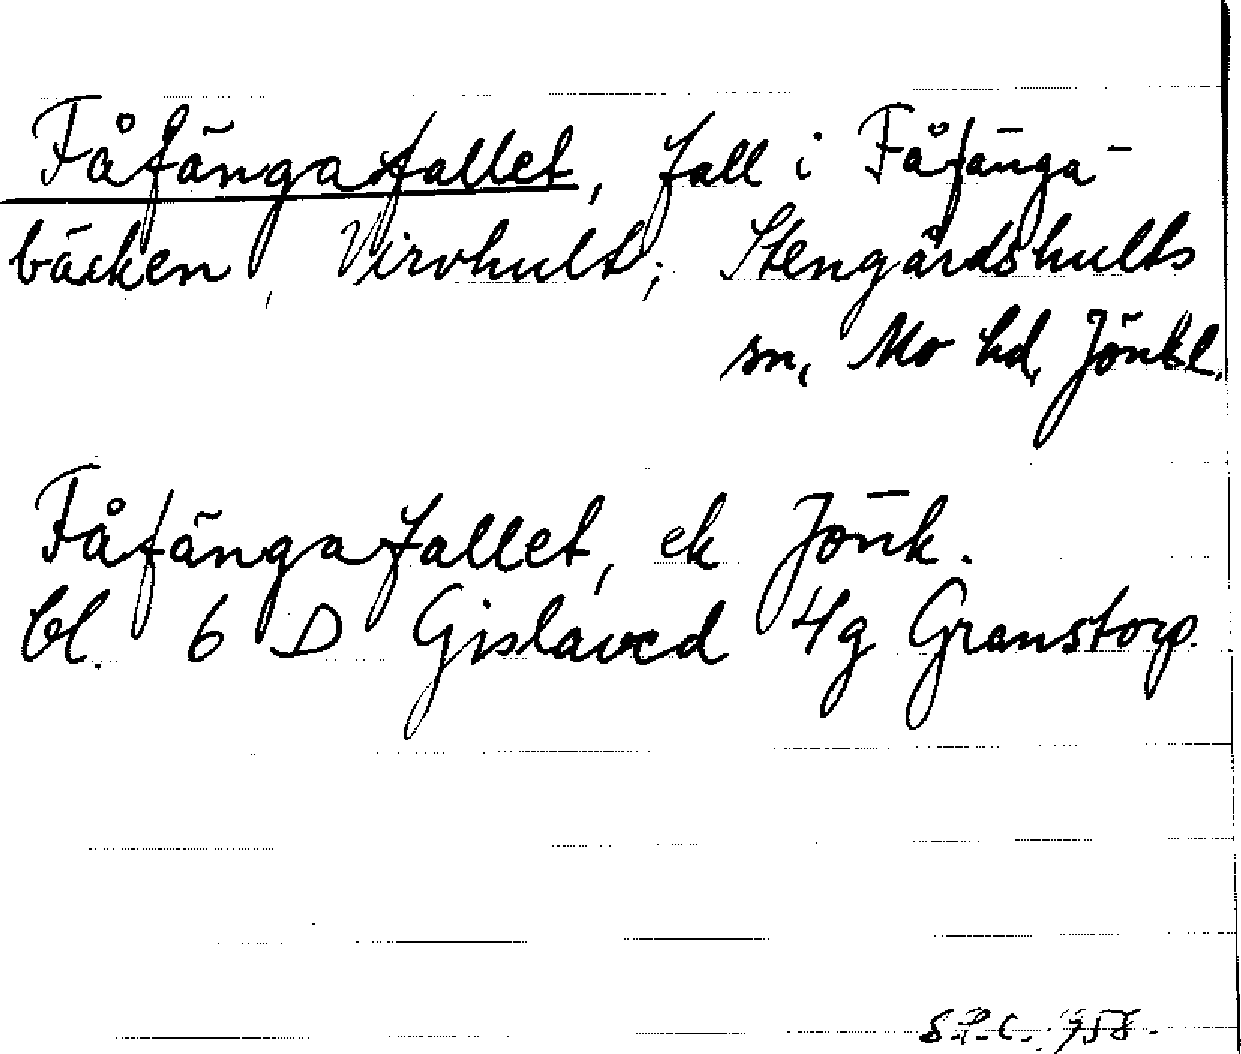 Fåfängafallet, fall i Fåfänga-
bäcken, Virvhult, Stengårdshults
sn, Mo hd, Jönkl.
Fåfängafallet, ek Jönk.
bl. 6 D Gislaved 4g Granstorp.